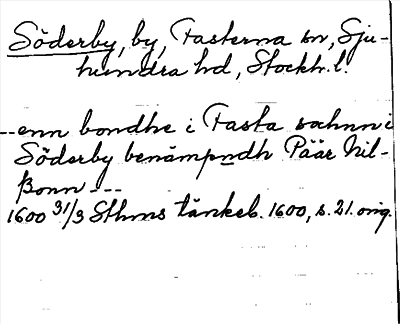 Söderby, by, Fasterna sn, Sju-
hundra hd, Stockh. l.
--enn bondhe i Fasta sochnn i
Söderby benämpndh Päär Nil-
ßonn ---
1600 31/3 Sthms tänkeb. 1600, s. 21. orig.